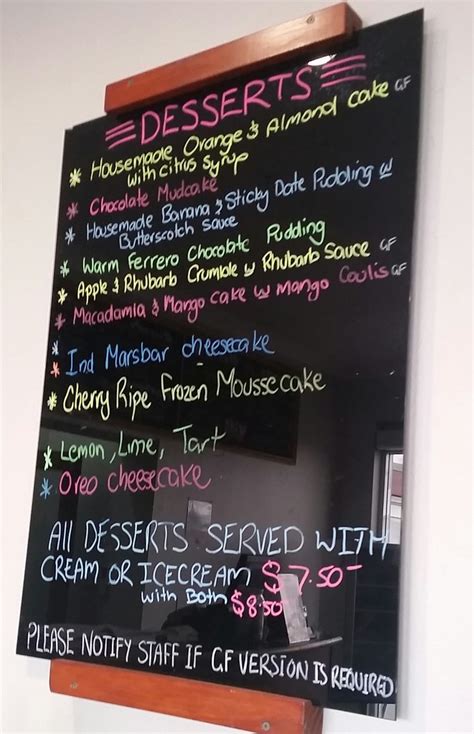 DESSERTS
* Housemade Orange & Almond cake GF
with citrus syrup
* Chocolate Mudcake
* Housemade Banana & Sticky Date Pudding w
Butterscotch sauce
* Warm Ferrero Chocolate Pudding
* Apple & Rhubarb Crumble w Rhubarb Sauce GF
* Macadamia & Mango cake w Mango Coulis GF
* Ind Marsbar cheesecake
* Cherry Ripe Frozen Mousse cake
* Lemon, Lime, Tart
* Oreo cheesecake
All DESSERTS SERVED WITH
CREAM OR ICECREAM $7.50
with Both $8.50
PLEASE NOTIFY STAFF IF GF VERSION IS REQUIRED